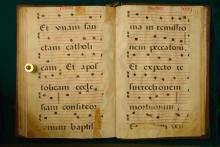 Et unam san
ctam catholi
cam, Et apos
tolicam eccle
siam confiteor
unum baptis
ma in remissio
nem peccatorū
Et expecto re
surrectionem
mortuorum,
Et